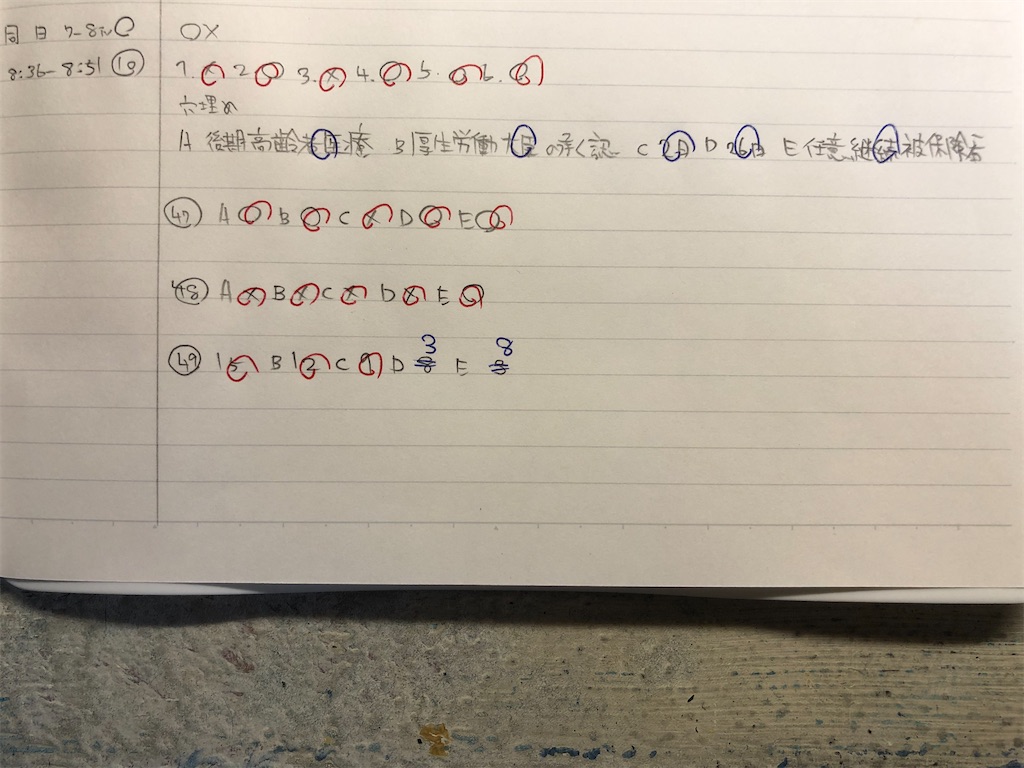 同日 7-8 ○×
8:36-8:51 ⑲ 1. × 2 ○ 3. × 4. ○ 5. ○ 6. ○
穴埋め
A 後期高齢者医療 B 厚生労働大臣の承認 C 2月 D 26日 E 任意継続被保険者
㊼ A ○ B ○ C × D ○ E ○
㊽ A × B × C × D × E ○
㊾ B 12 C D 3 E 8